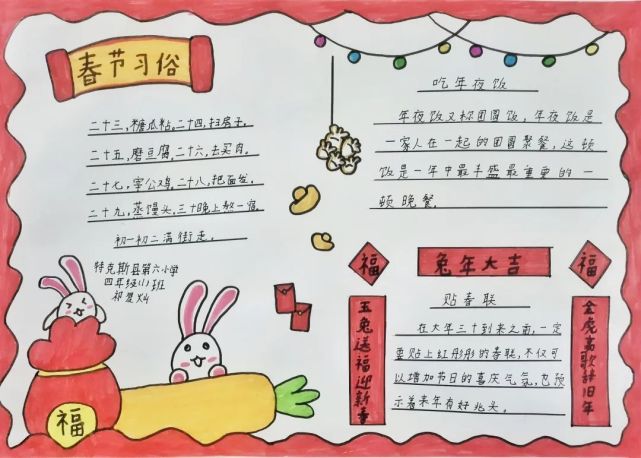 春节习俗
二十三，糖瓜粘。二十四，扫房子。
二十五，磨豆腐。二十六，去买肉。
二十七，宰公鸡。二十八，把面发。
二十九，蒸馒头，三十晚上熬一宿。
初一初二满街走。
特克斯县第六小学
四年级(1)班
吃年夜饭
年夜饭又称团圆饭，年夜饭是
一家人在一起的团圆聚餐，这顿
饭是一年中最丰盛最重要的一
顿晚餐.
福
兔年大吉
福
玉兔送福迎新春
金虎高歌辞旧年
贴春联
在大年三十到来之前，一定
要贴上红彤彤的春联，不仅可
以增加节日的喜庆气氛，也预
示着来年有好兆头。
福